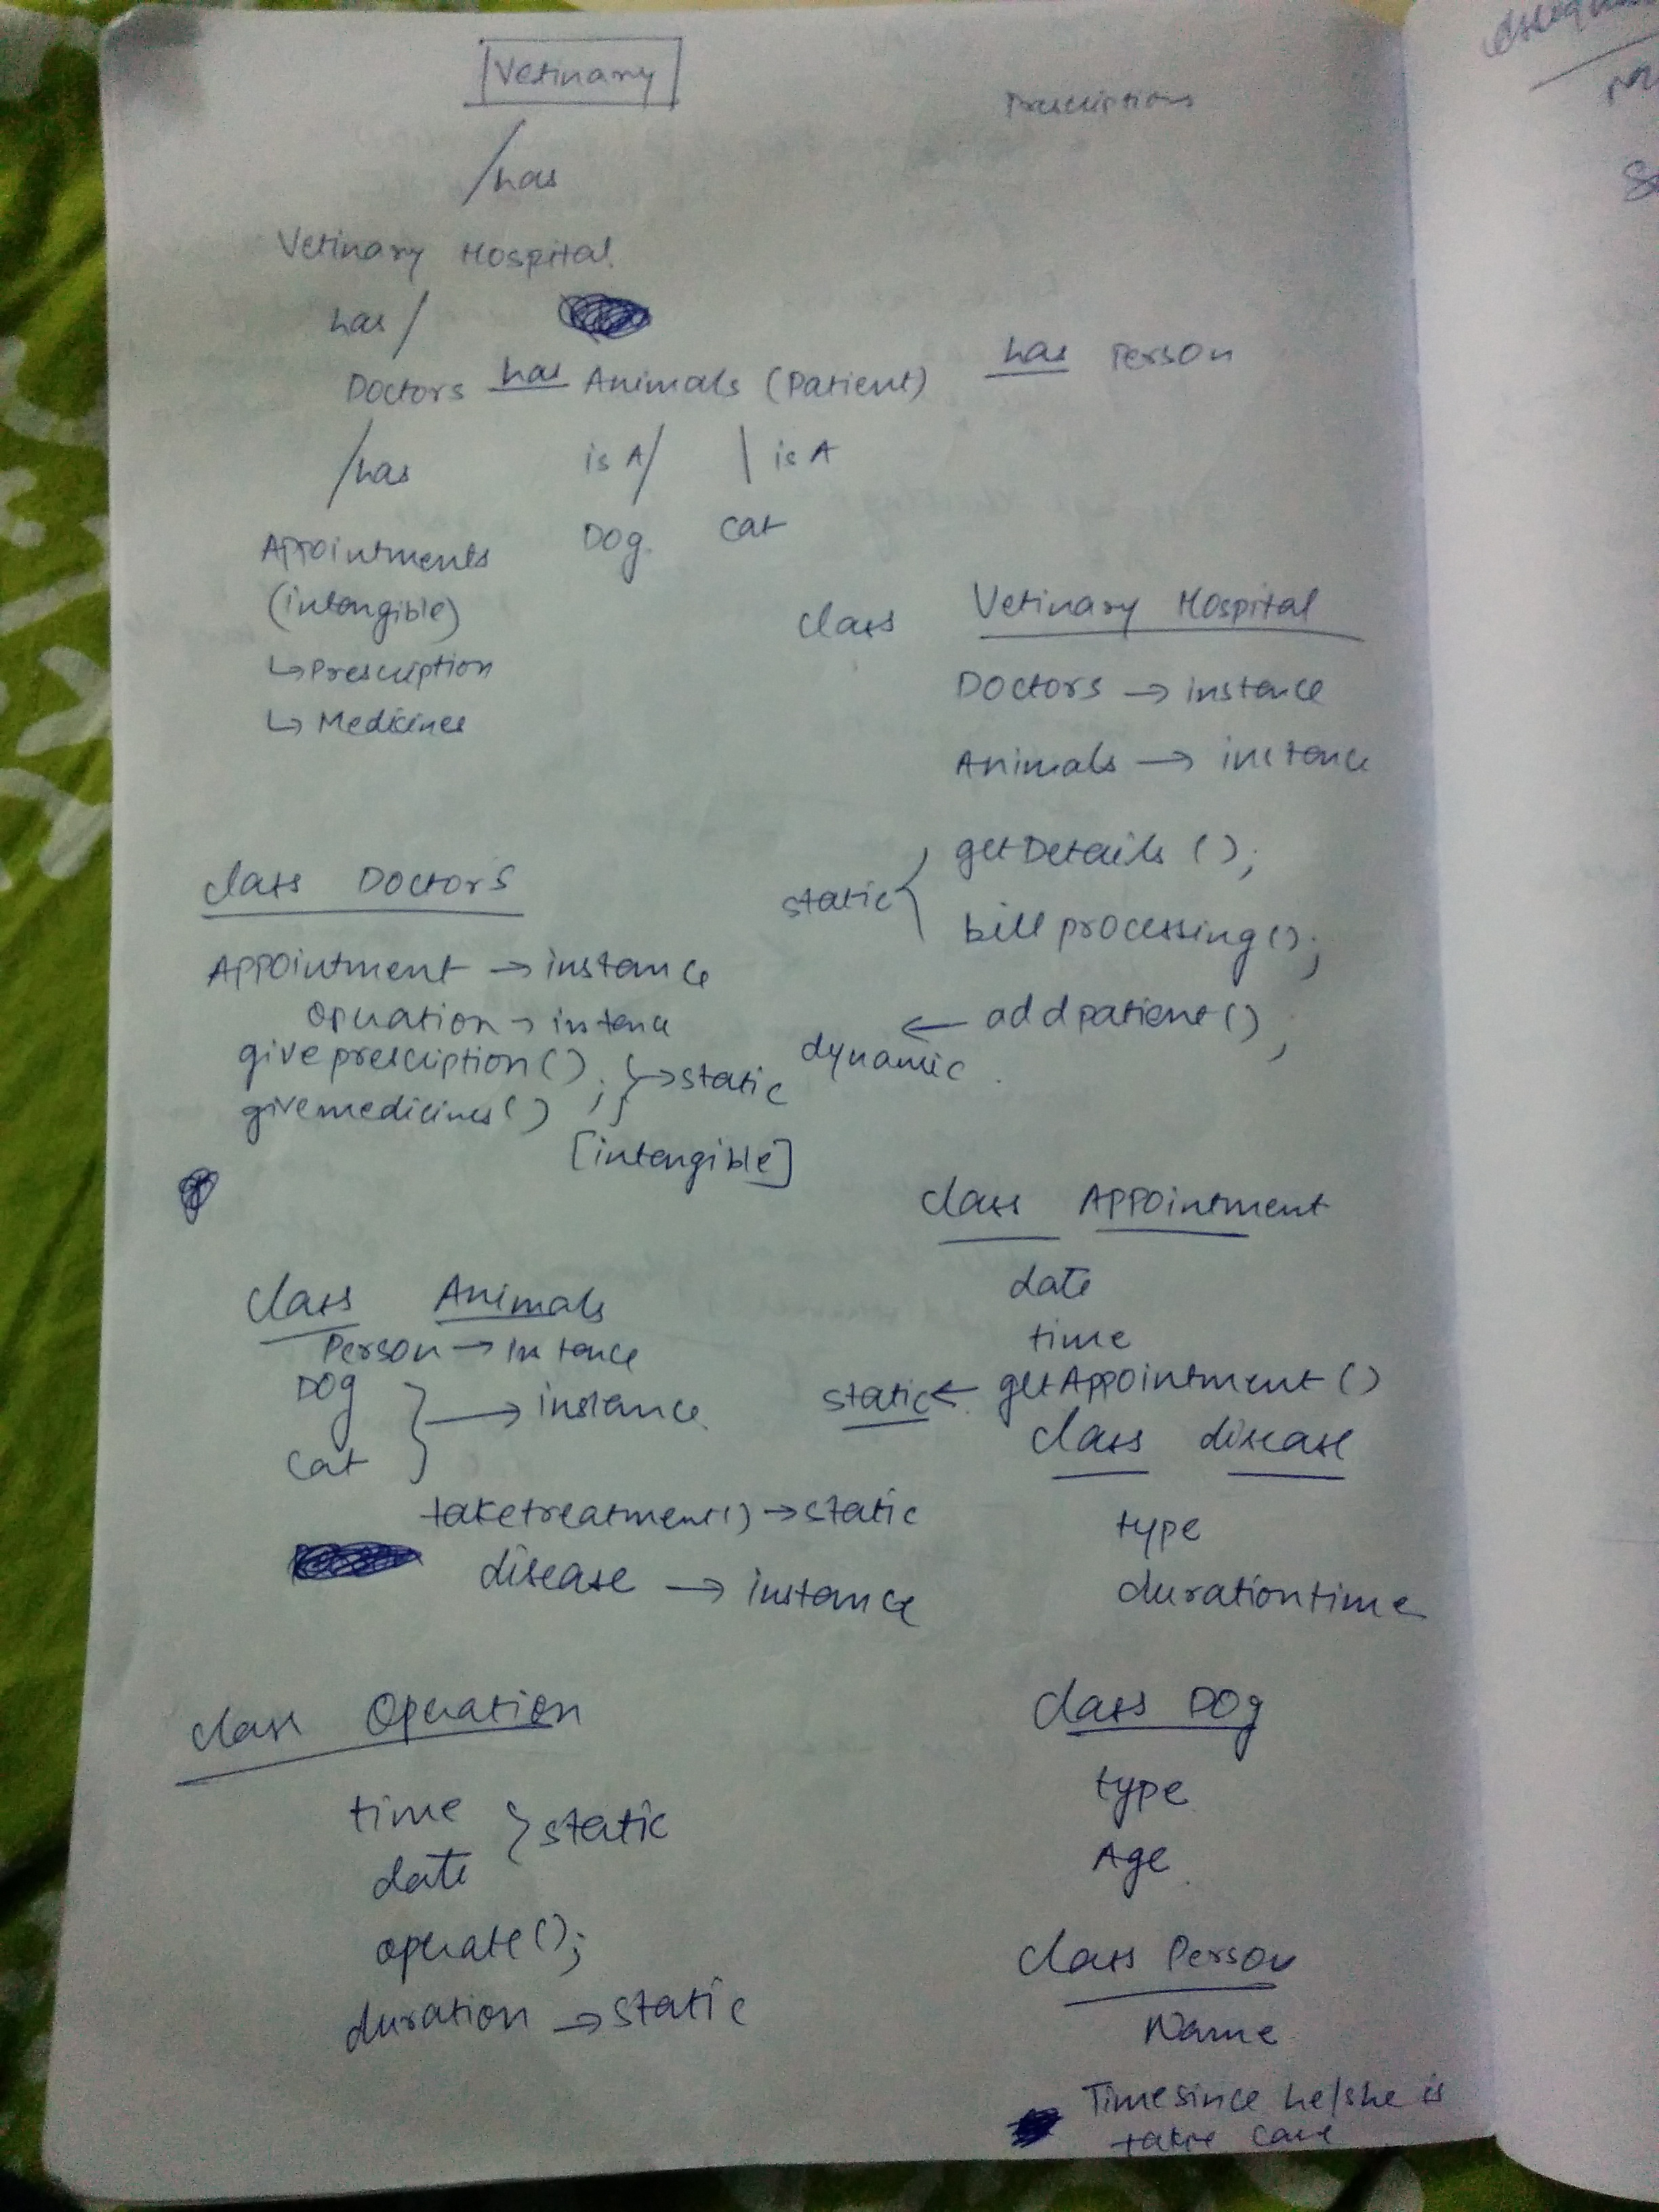 Vetinary
Prescriptions
/has
Vetinary Hospital
has /
Doctors has Animals (Patient) has Person
/has is A/ | is A
Appointments Dog cat
(intangible)
↳ Prescription
↳ Medicines
class Vetinary Hospital
Doctors → instence
Animals → instence
static { getDetails ();
bill processing();
dynamic ← add patient();
class Doctors
Appointment → instance
Operation → instence
give prescription() ;
givemedicines() ; } → static
[intangible]
class Appointment
date
time
static ← getAppointment ()
class Animals
Person → instence
Dog
cat } → instance
taketreatment() → static
disease → instance
class disease
type
durationtime
class Operation
time
date } static
operate();
duration → static
class Dog
type
Age
class Person
Name
Timesince he/she is
care